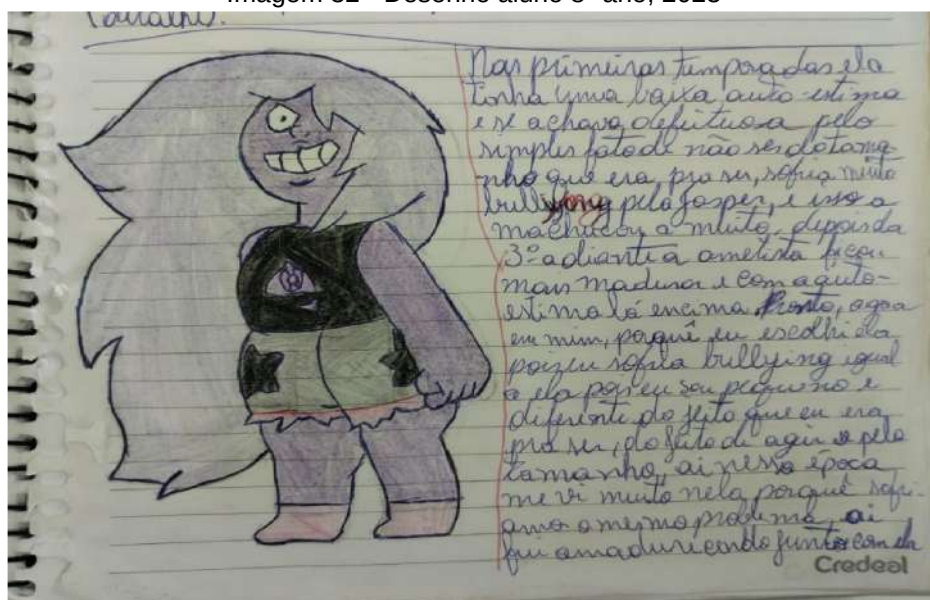 Nas primeiras temporadas ela
tinha uma baixa auto-estima
e se achava defeituosa pelo
simples fato de não ser do tama-
nho que era pra ser, sofria muito
bullying pela Jasper, e isso a
machucou a muito, depois da
3º adiante a ametista ficou
mais madura e com a auto-
estima lá encima. Pronto, agoa
em mim, porquê eu escolhi ela
pois eu sofria bullying igual
a ela pois eu sou pequeno e
diferente do jeito que eu era
pra ser, do jeito de agir e pelo
tamanho, ai nessa época
me vi muito nela, porquê sofri-
amos o mesmo problema, ai
fui amadurecendo junto com ela
Credeal